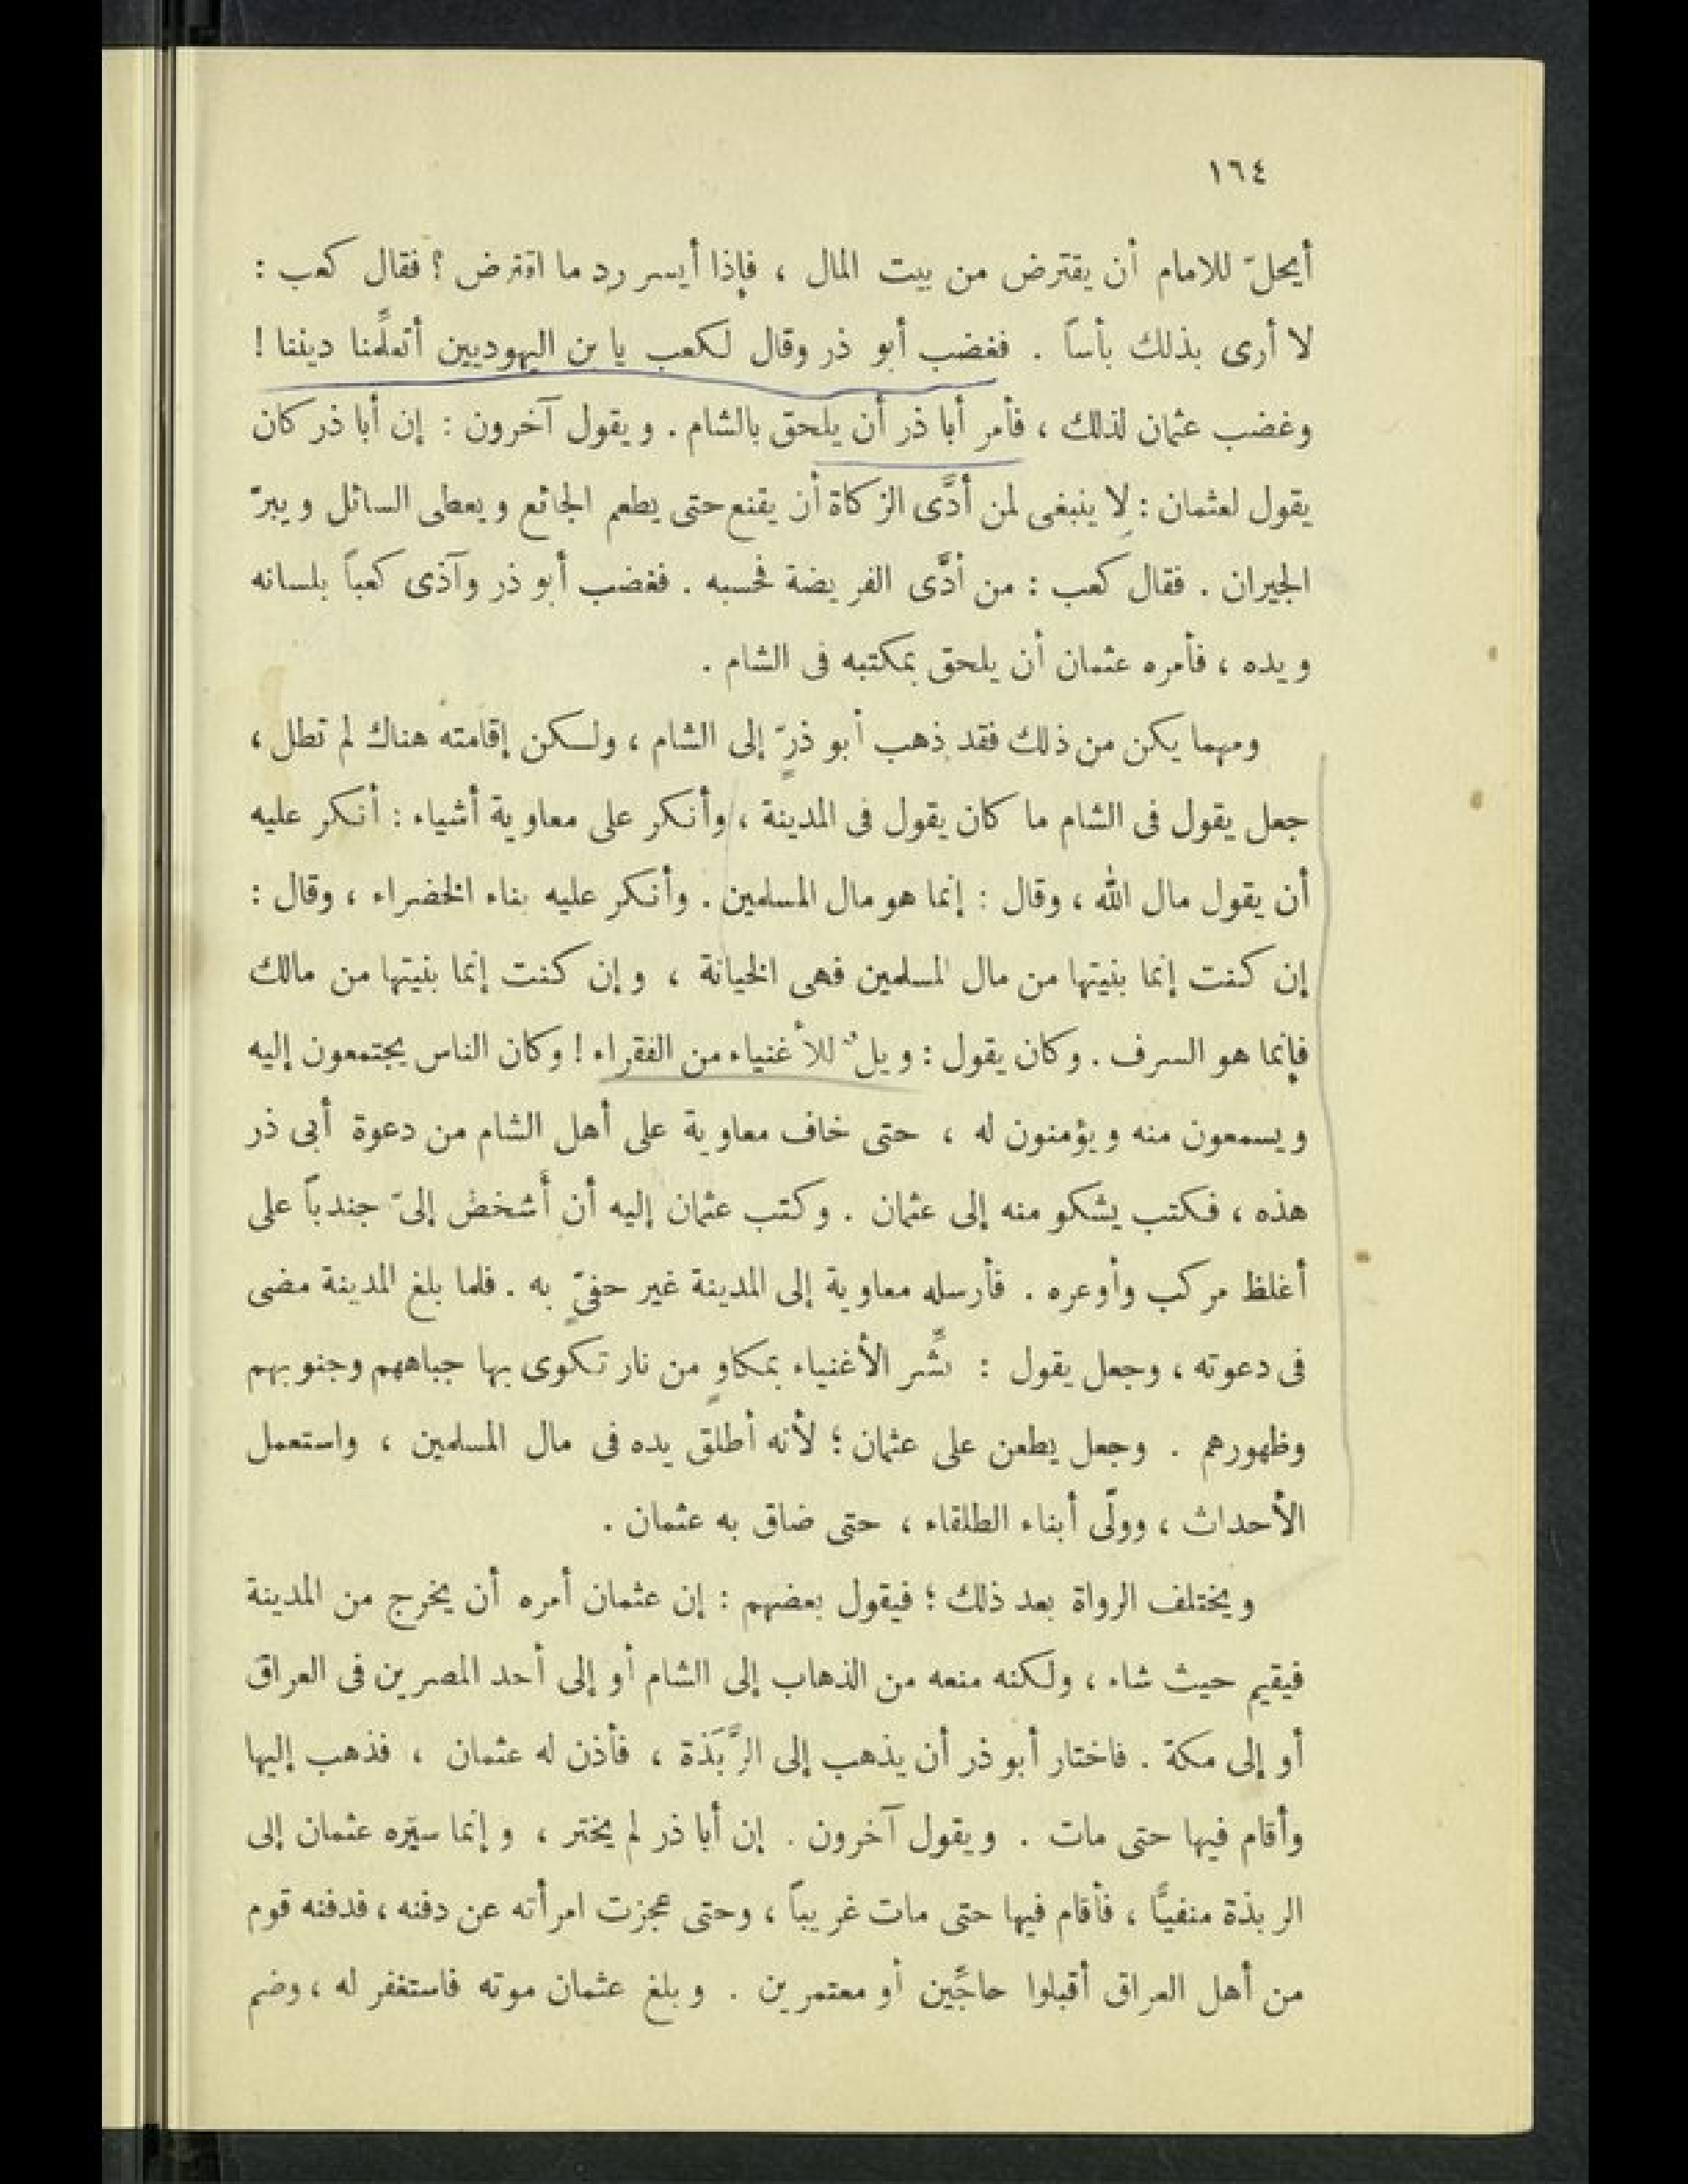 ١٦٤
أيحلّ للامام أن يقترض من بيت المال ، فإذا أيسر رد ما اقترض ؟ فقال كعب :
لا أرى بذلك بأساً . فغضب أبو ذر وقال لكعب يا بن اليهوديين أتعلِّمنا ديننا !
وغضب عثمان لذلك ، فأمر أبا ذر أن يلحق بالشام . ويقول آخرون : إن أبا ذر كان
يقول لعثمان : لا ينبغى لمن أدَّى الزكاة أن يقنع حتى يطعم الجائع ويعطى السائل ويبرّ
الجيران . فقال كعب : من أدَّى الفريضة فحسبه . فغضب أبو ذر وآذى كعباً بلسانه
ويده ، فأمره عثمان أن يلحق بمكتبه فى الشام .
ومهما يكن من ذلك فقد ذهب أبو ذرٍّ إلى الشام ، ولكن إقامته هناك لم تطل ،
جعل يقول فى الشام ما كان يقول فى المدينة ، وأنكر على معاوية أشياء : أنكر عليه
أن يقول مال الله ، وقال : إنما هو مال المسلمين . وأنكر عليه بناء الخضراء ، وقال :
إن كنت إنما بنيتها من مال المسلمين فهى الخيانة ، وإن كنت إنما بنيتها من مالك
فإنما هو السرف . وكان يقول : ويلٌ للأغنياء من الفقراء ! وكان الناس يجتمعون إليه
ويسمعون منه ويؤمنون له ، حتى خاف معاوية على أهل الشام من دعوة أبى ذر
هذه ، فكتب يشكو منه إلى عثمان . وكتب عثمان إليه أن أَشخصْ إلىّ جندباً على
أغلظ مركب وأوعره . فأرسله معاوية إلى المدينة غير حفىٍّ به . فلما بلغ المدينة مضى
فى دعوته ، وجعل يقول : بشِّر الأغنياء بمكاوٍ من نار تكوى بها جباههم وجنوبهم
وظهورهم . وجعل يطعن على عثمان ؛ لأنه أطلق يده فى مال المسلمين ، واستعمل
الأحداث ، وولّى أبناء الطلقاء ، حتى ضاق به عثمان .
ويختلف الرواة بعد ذلك ؛ فيقول بعضهم : إن عثمان أمره أن يخرج من المدينة
فيقيم حيث شاء ، ولكنه منعه من الذهاب إلى الشام أو إلى أحد المصرين فى العراق
أو إلى مكة . فاختار أبو ذر أن يذهب إلى الرَّبَذة ، فأذن له عثمان ، فذهب إليها
وأقام فيها حتى مات . ويقول آخرون . إن أبا ذر لم يختر ، وإنما سيّره عثمان إلى
الربذة منفيًّا ، فأقام فيها حتى مات غريباً ، وحتى عجزت امرأته عن دفنه ، فدفنه قوم
من أهل العراق أقبلوا حاجِّين أو معتمرين . وبلغ عثمان موته فاستغفر له ، وضم